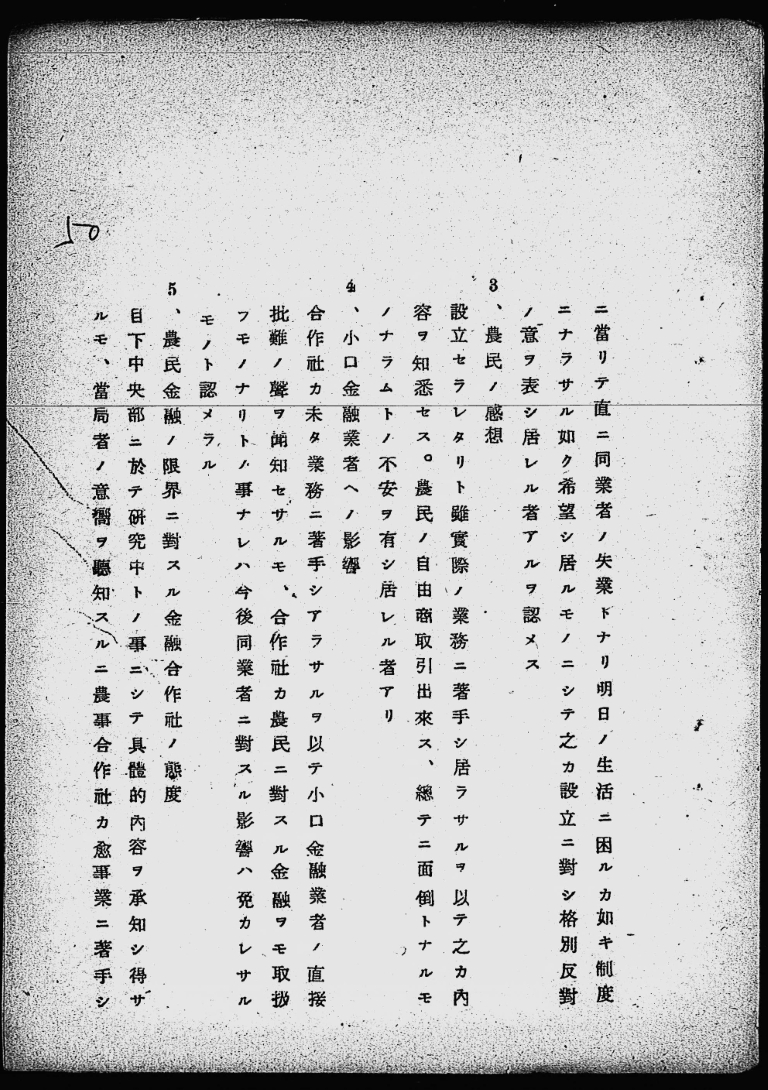 ニ當リテ直ニ同業者ノ失業トナリ明日ノ生活ニ困ルカ如キ制度
ニナラサル如ク希望シ居ルモノニシテ之カ設立ニ對シ格別反對
ノ意ヲ表シ居レル者アルヲ認メス
3、農民ノ感想
設立セラレタリト雖實際ノ業務ニ著手シ居ラサルヲ以テ之カ內
容ヲ知悉セス。農民ノ自由商取引出來ス、總テニ面倒トナルモ
ノナラムトノ不安ヲ有シ居レル者アリ
4、小口金融業者ヘノ影響
合作社カ未タ業務ニ著手シアラサルヲ以テ小口金融業者ノ直接
批難ノ聲ヲ聞知セサルモ、合作社カ農民ニ對スル金融ヲモ取扱
フモノナリトノ事ナレハ今後同業者ニ對スル影響ハ免カレサル
モノト認メラル
5、農民金融ノ限界ニ對スル金融合作社ノ態度
目下中央部ニ於テ研究中トノ事ニシテ具體的內容ヲ承知シ得サ
ルモ、當局者ノ意嚮ヲ聽知スルニ農事合作社カ愈事業ニ著手シ
50